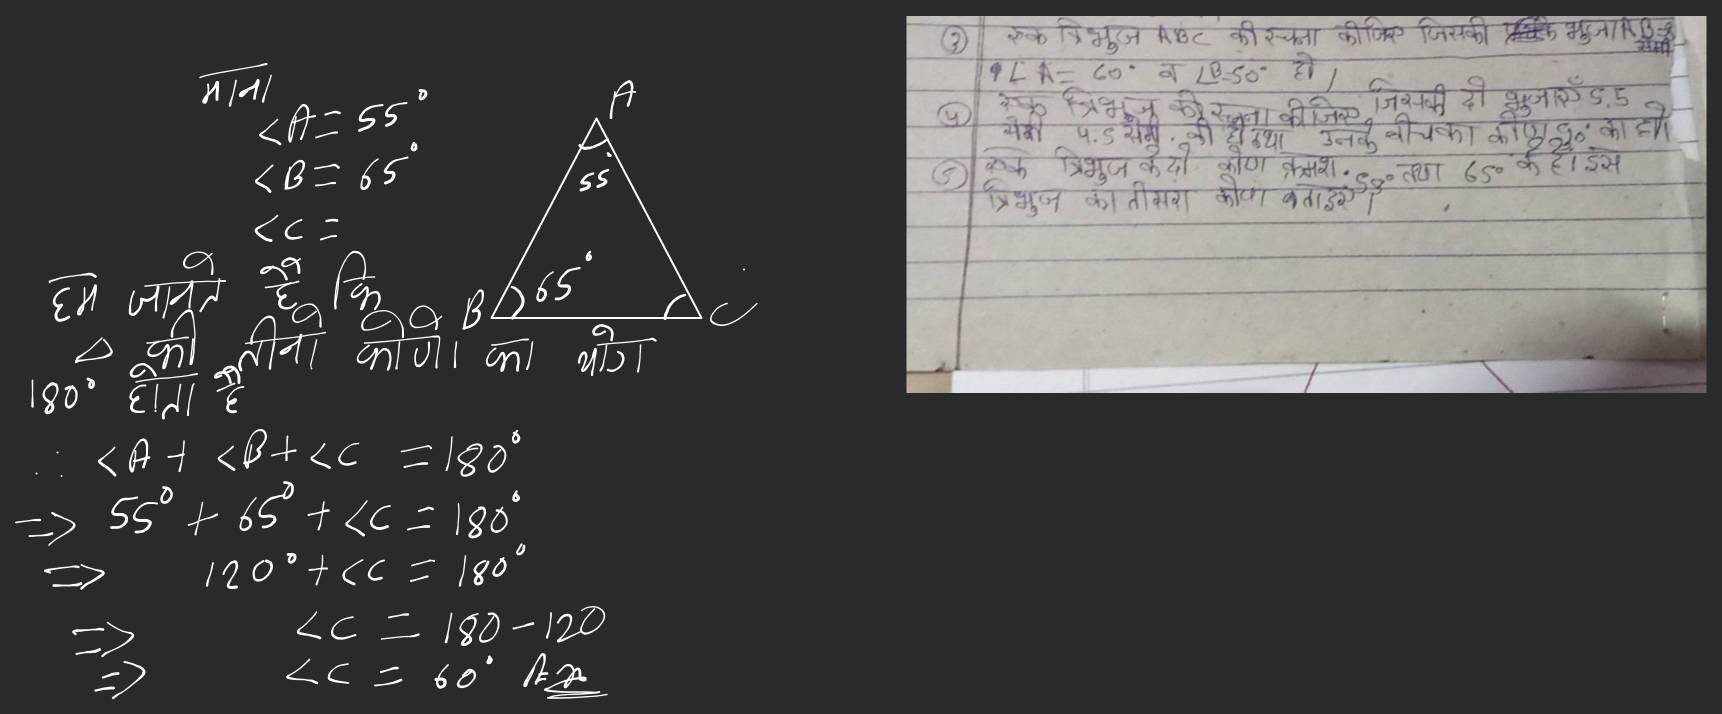 माना
<A = 55°
<B = 65°
<C =
A
55°
65°
B
C
हम जानते है कि
△ की तीनो कोणो का योग
180° होता है
∴ <A + <B + <C = 180°
=> 55° + 65° + <C = 180°
=> 120° + <C = 180°
=> <C = 180 - 120
=> <C = 60° Ans
③ एक त्रिभुज ABC की रचना कीजिए जिसकी भुजा AB=
∠A = 60° व ∠B=50° हो ।
④ एक त्रिभुज की रचना कीजिए जिसकी दो भुजाएँ 5.5
सेमी 4.5 सेमी. की हो तथा उनके बीच का कोण का हो।
⑤ एक त्रिभुज के दो कोण क्रमश. 55° तथा 65° के है। इस
त्रिभुज का तीसरा कोण बताइए।